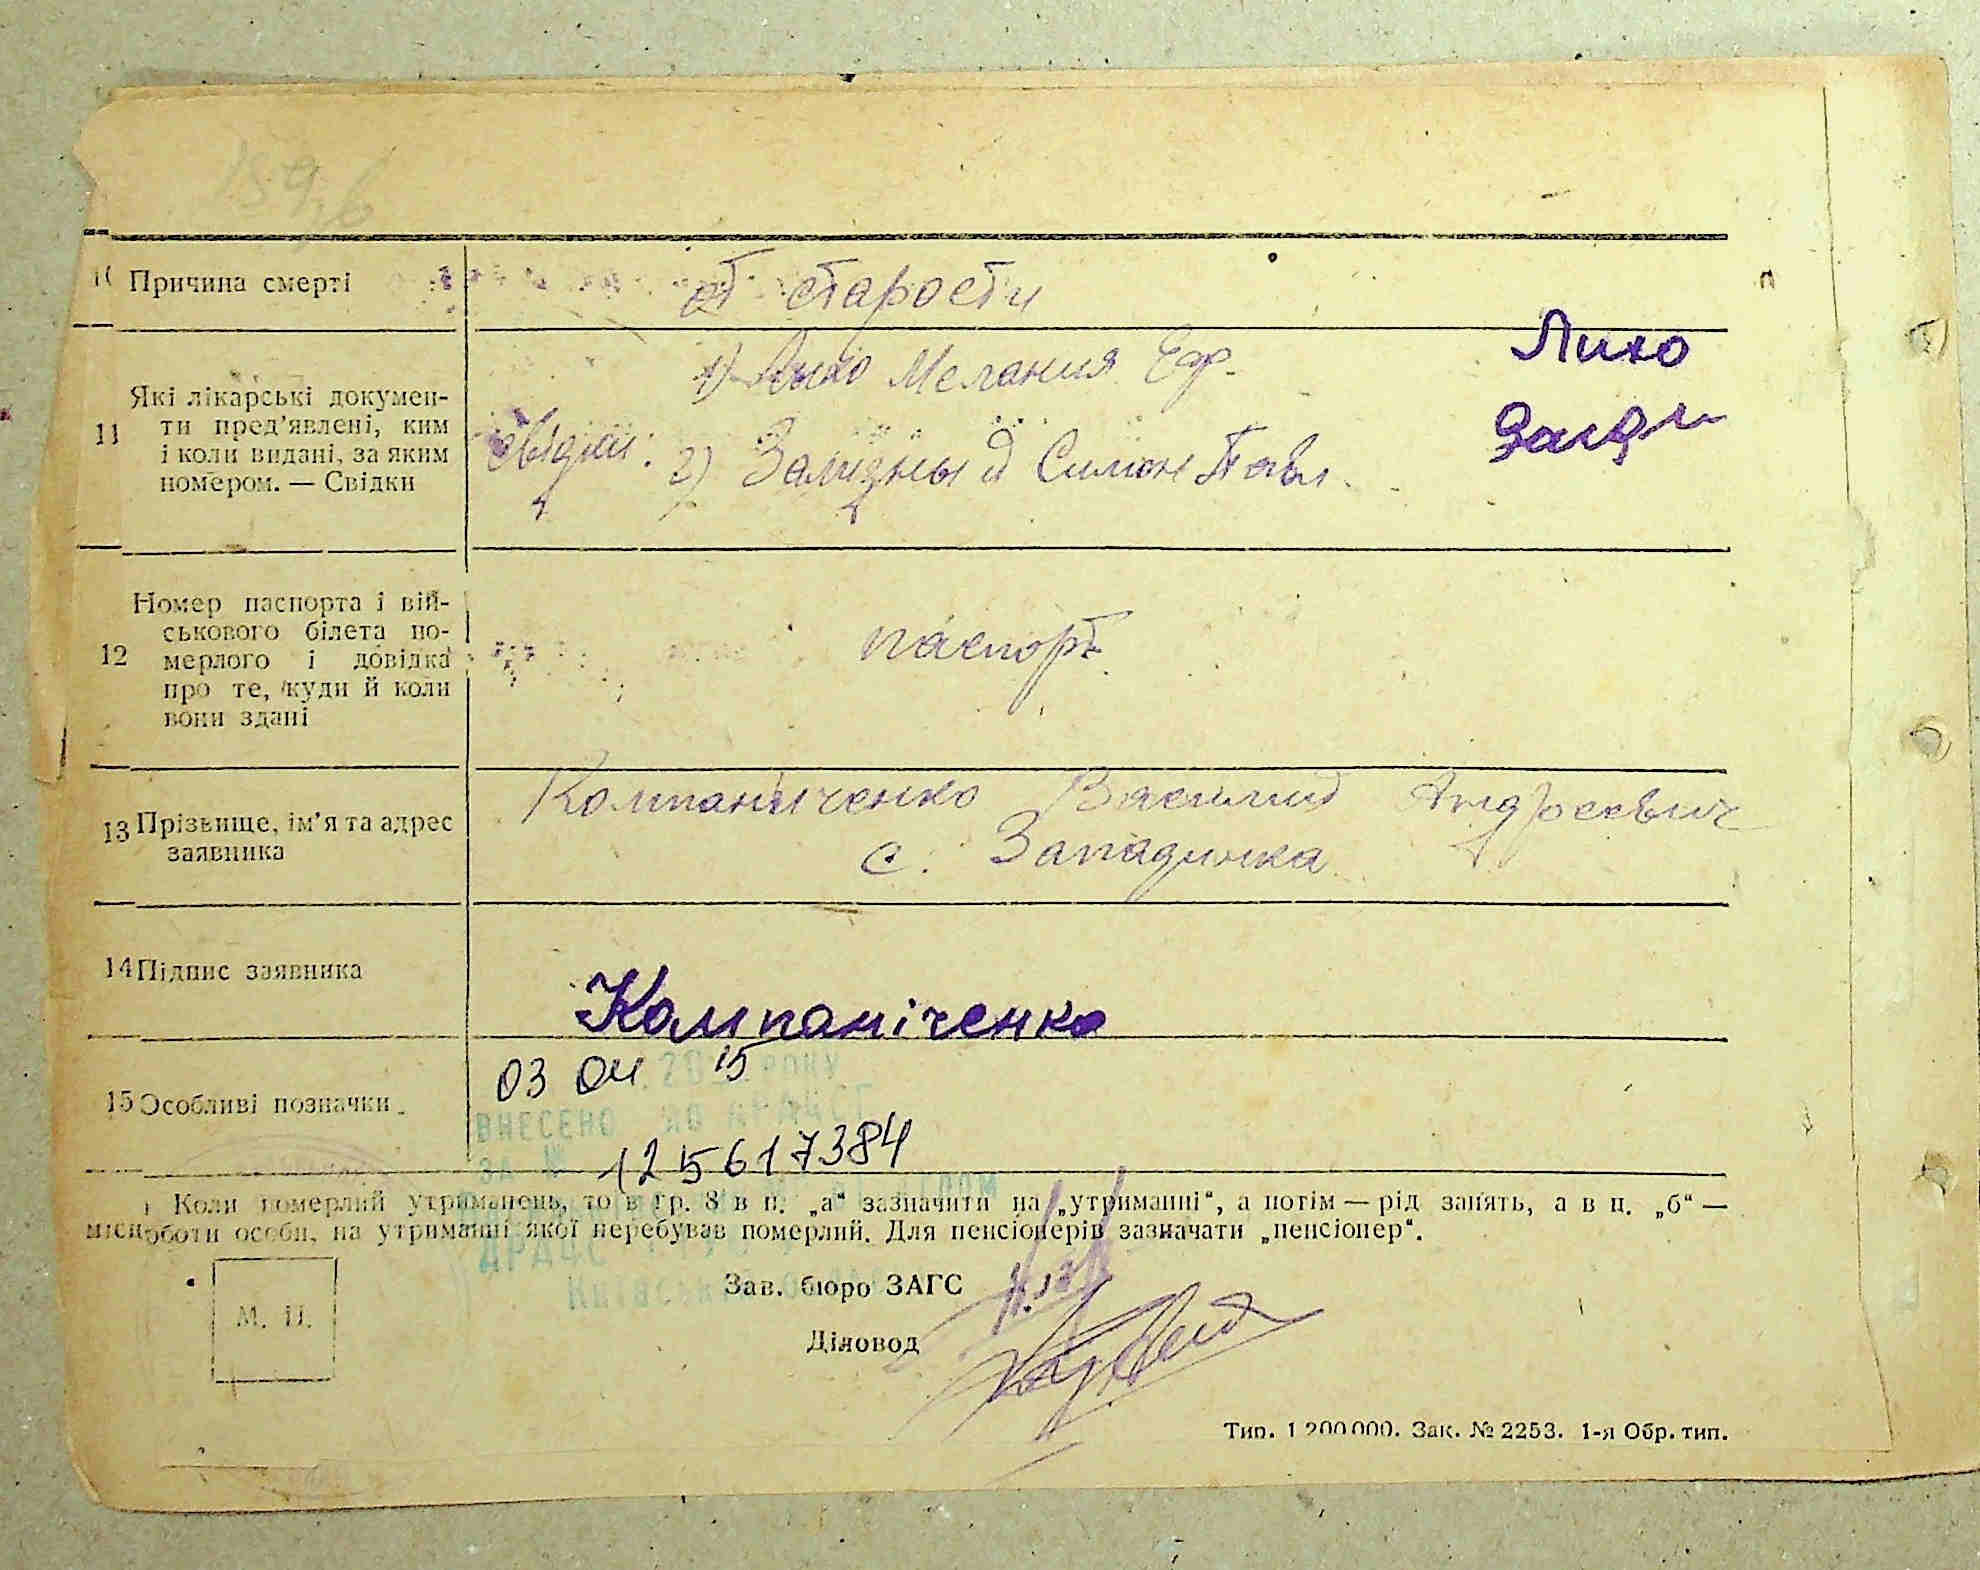 Причина смерті
от старости
11 Які лікарські докумен-
ти пред’явлені, ким
і коли видані, за яким
номером. — Свідки
1) Лихо Мелания Ефр.
Лихо
свідки: 2) Зализный Симон Павл.
12 Номер паспорта і вій-
ськового білета по-
мерлого і довідка
про те, куди й коли
вони здані
паспорт
13 Прізвище, ім’я та адрес
заявника
Компаниченко Василий Андреевич
с. Западинка
14 Підпис заявника
Компаніченко
15 Особливі позначки
03 04 2015 РОКУ
ВНЕСЕНО ДО ДРАЦСГ
ЗА № 125617384
Коли померлий утриманець, то в гр. 8 в п. „а“ зазначити на „утриманні“, а потім — рід занять, а в п. „б“ —
роботи особи, на утриманні якої перебував померлий. Для пенсіонерів зазначати „пенсіонер“.
ДРАЦС
Зав. бюро ЗАГС
М. П.
Діловод
Тип. 1 200 000. Зак. № 2253. 1-я Обр. тип.